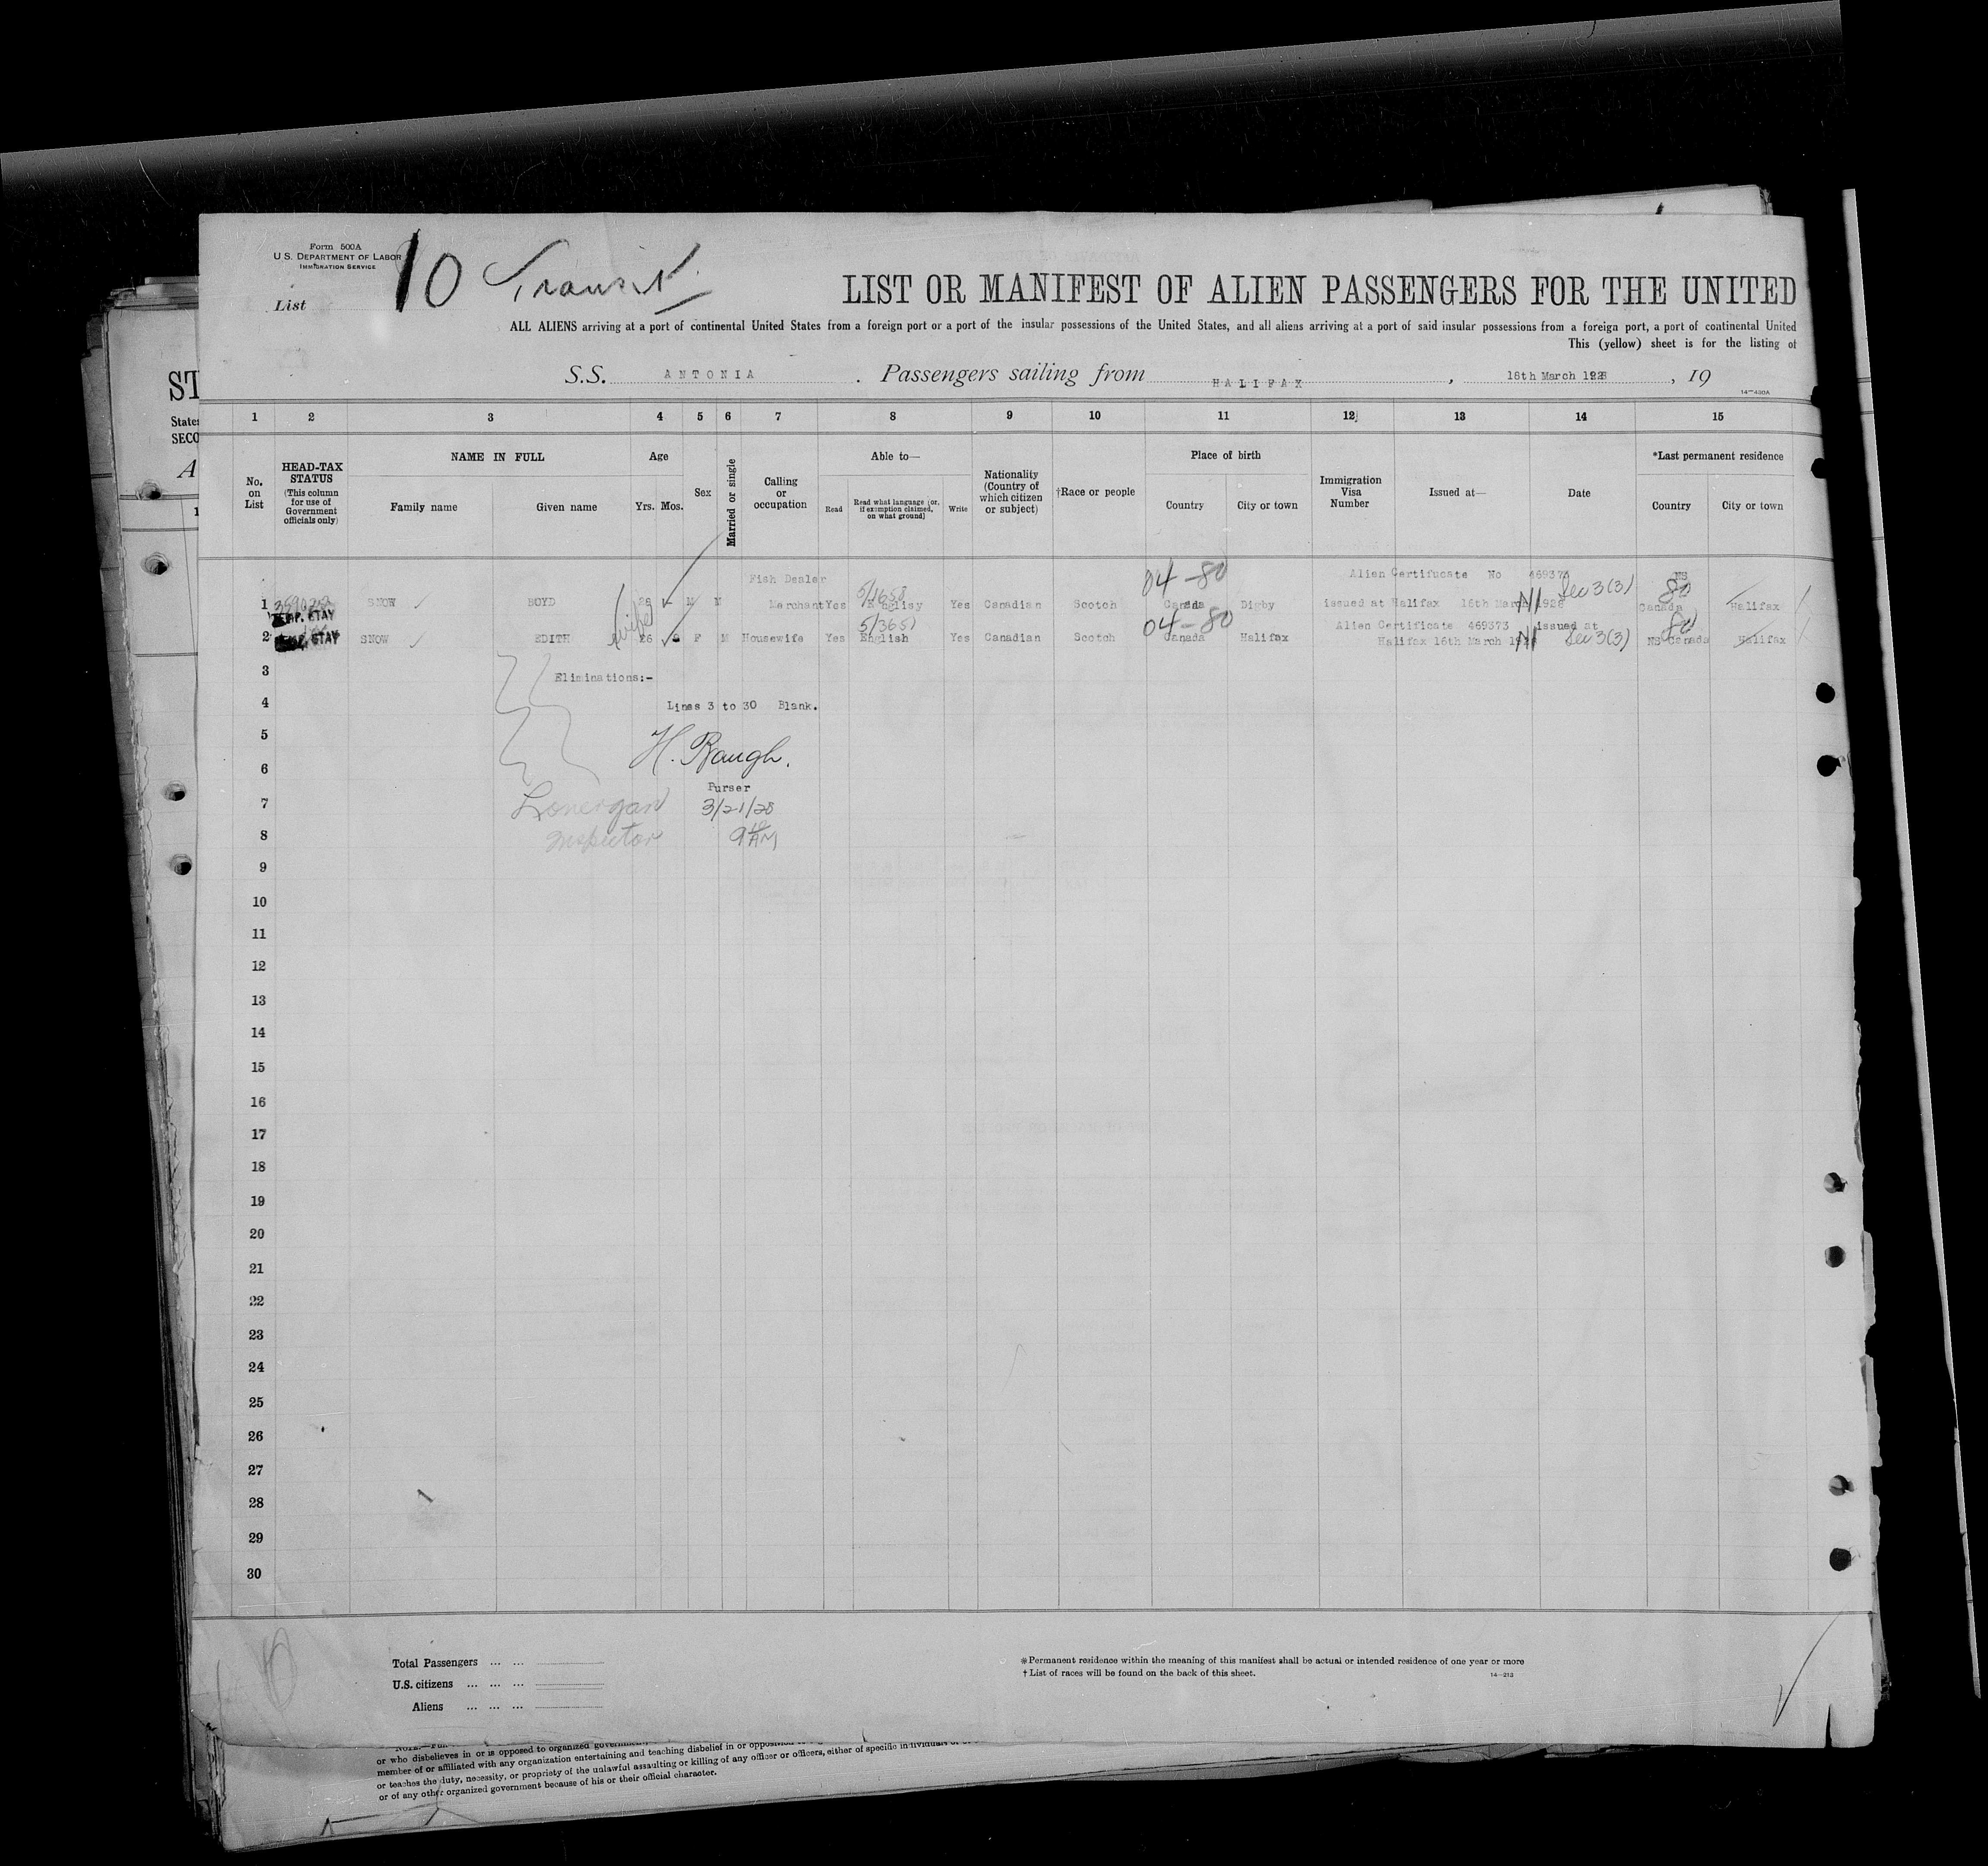 Form 500A
U. S. DEPARTMENT OF LABOR
IMMIGRATION SERVICE
List
10 Transit
LIST OR MANIFEST OF ALIEN PASSENGERS FOR THE UNITED
ALL ALIENS arriving at a port of continental United States from a foreign port or a port of the insular possessions of the United States, and all aliens arriving at a port of said insular possessions from a foreign port, a port of continental United
This (yellow) sheet is for the listing of
S.S. ANTONIA . Passengers sailing from HALIFAX , 18th March 1928 , 19
14—430A
ST
States
SECO
A
1
1 2 3 4 5 6 7 8 9 10 11 12 13 14 15
No. on List
HEAD-TAX STATUS (This column for use of Government officials only)
NAME IN FULL
Family name Given name
Age
Yrs. Mos.
Sex
Married or single
Calling or occupation
Able to—
Read
Read what language [or, if exemption claimed, on what ground]
Write
Nationality (Country of which citizen or subject)
†Race or people
Place of birth
Country City or town
Immigration Visa Number
Issued at—
Date
*Last permanent residence
Country City or town
Fish Dealer 5/1658 04-80 Alien Certifucate No 469373 Sec 3(3) NS 80
1 359023 SNOW BOYD M M Merchant Yes Englisy Yes Canadian Scotch Canada Digby issued at Halifax 16th March 1928 Canada Halifax
TEMP. STAY
wife 5/3651 04-80 Alien Certificate 469373 issued at 80
2 TEMP. STAY SNOW EDITH 26 F M Housewife Yes English Yes Canadian Scotch Canada Halifax Halifax 16th March Sec 3(3) NS Canada Halifax
3 Eliminations:-
4 Lines 3 to 30 Blank.
5 H. Baugh.
6
Purser
7 Lonergan 3/21/28
8 Inspector 9 10 AM
9
10
11
12
13
14
15
16
17
18
19
20
21
22
23
24
25
26
27
28
29
30
Total Passengers ... ...
U.S. citizens ... ... ...
Aliens ... ... ...
*Permanent residence within the meaning of this manifest shall be actual or intended residence of one year or more
† List of races will be found on the back of this sheet.
14—213
or who disbelieves in or is opposed to organized government,
member of or affiliated with any organization entertaining and teaching disbelief in or
or teaches the duty, necessity, or propriety of the unlawful assaulting or killing of any officer or officers, either of specific individuals or
or of any other organized government because of his or their official character.